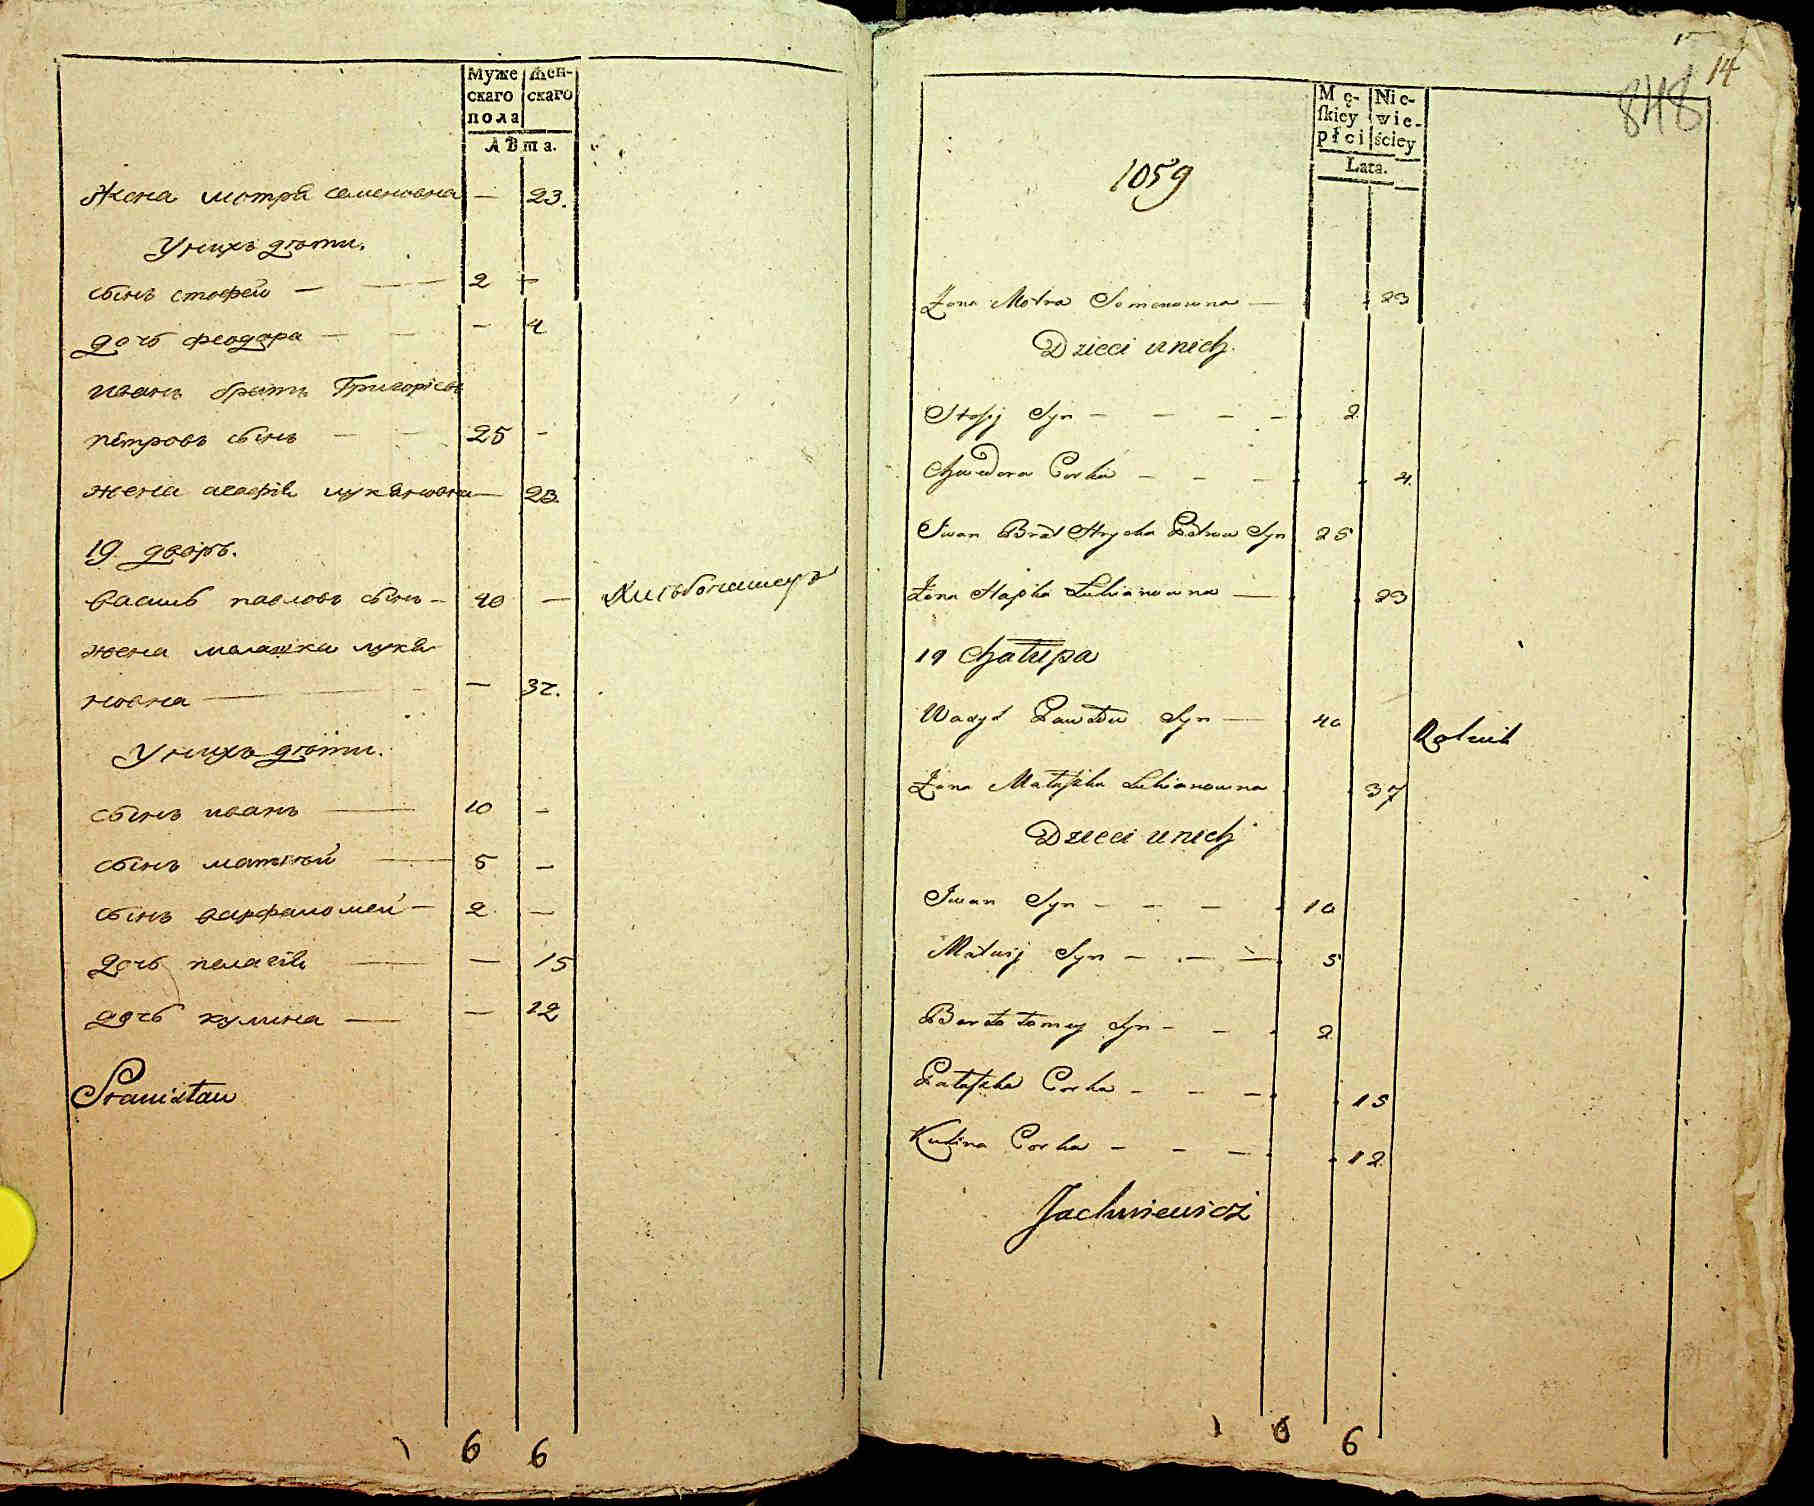 Муже
скаго
пола
Жен-
скаго
Лѣта.
жена мотря семеновна — 23.
У нихъ дѣти.
сынъ стефей — — 2 —
дочь феодора — — — 4
иванъ братъ Григорiевъ
петровъ сынъ — — 25 —
жена агафiя лукяновна — 23.
19 дворъ.
василь павловъ сынъ — 40 — Хлѣбопашецъ
жена малашка лукя
новна — — 37.
У нихъ дѣти.
сынъ иванъ — 10 —
сынъ матвѣй — 5 —
сынъ варфаломей — 2 —
дочь пелагiя — — 15
дочь кулина — — 12
Stanisław
6 6
14
848
Mę-
skiey
płci
Nie-
wie-
ściey
Lata.
1059
Żona Motra Semenowna — 23
Dzieci u nich.
Stefij Syn — — — — 2
Chwedora Corka — — — 4.
Iwan Brat Hrycka Petrow Syn 25
Żona Hapka Lukianowna — 23
19 Chałupa
Wasyl Pawłow Syn — 40 Rolnik
Żona Małaszka Lukianowna 37
Dzieci u nich
Iwan Syn — — — 10
Matwij Syn — — — 5
Bartłomey Syn — — 2
Pałaszka Corka — — — 15
Kulina Corka — — — 12
Jachniewicz
6 6